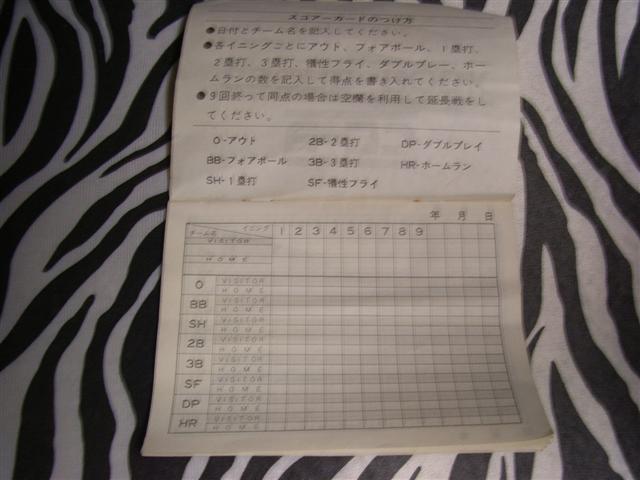 スコアーカードのつけ方
●日付とチーム名を記入してください。
●各イニングごとにアウト、フォアボール、1塁打、
2塁打、3塁打、犠性フライ、ダブルプレー、ホー
ムランの数を記入して得点を書き入れてください。
●9回終って同点の場合は空欄を利用して延長戦をし
てください。
O-アウト 2B-2塁打 DP-ダブルプレイ
BB-フォアボール 3B-3塁打 HR-ホームラン
SH-1塁打 SF-犠性フライ
年 月 日
チーム名 イニング 1 2 3 4 5 6 7 8 9
VISITOR
HOME
O VISITOR
HOME
BB VISITOR
HOME
SH VISITOR
HOME
2B VISITOR
HOME
3B VISITOR
HOME
SF VISITOR
HOME
DP VISITOR
HOME
HR VISITOR
HOME